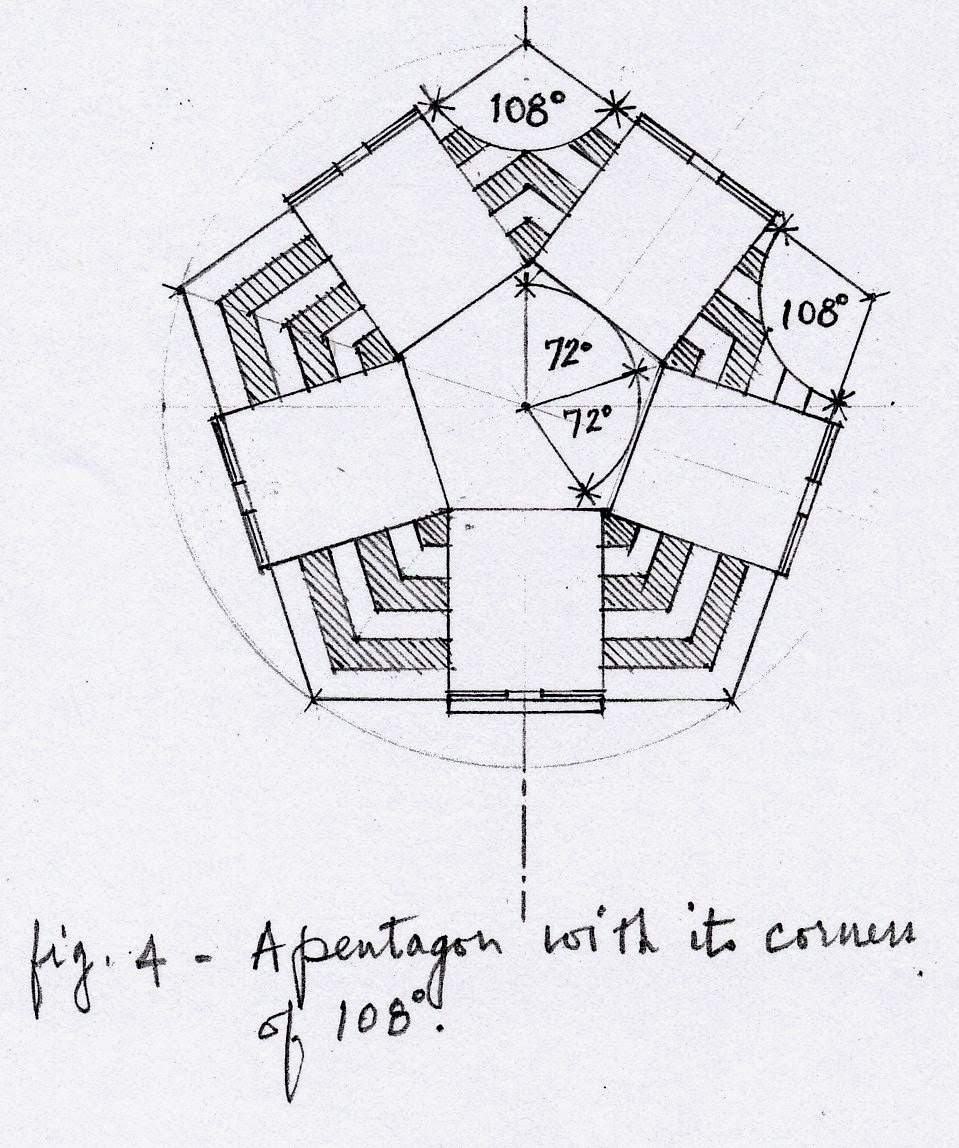 108°
108°
72°
72°
fig. 4 - A pentagon with its corners
of 108°.